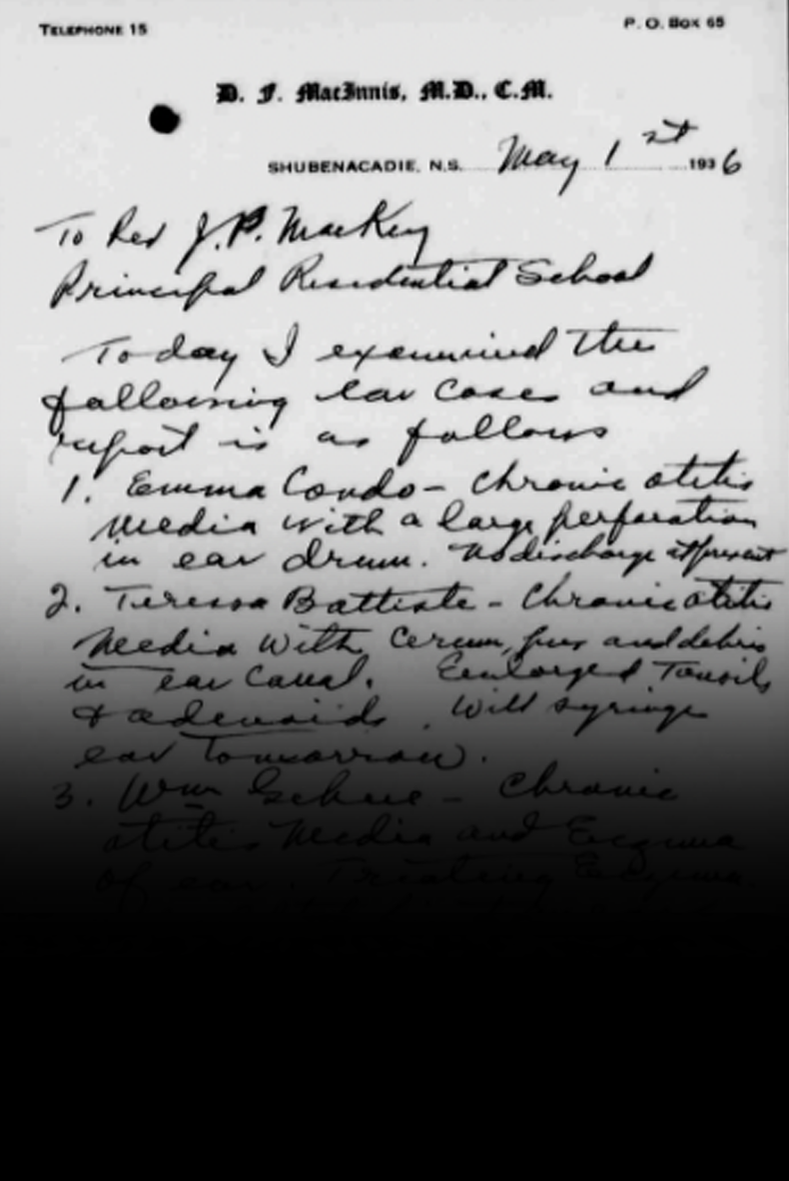 TELEPHONE 15
P. O. Box 65
D. F. MacInnis, M.D., C.M.
SHUBENACADIE, N.S. May 1st 1936
To Rev J. P. MacKey
Principal Residential School
Today I examined the
following ear cases and
report is as follows
1. Emma Condo - Chronic otitis
media with a large perforation
in ear drum. No discharge at present
2. Teresa Battiste - Chronic otitis
Media with cerum, pus and debris
in ear canal. Eenlarged Tonsils
& adenoids. Will syringe
ear Tomorrow.
3. Wm - Chronic
otitis Media and Eczema
of ear. Treating Eczema